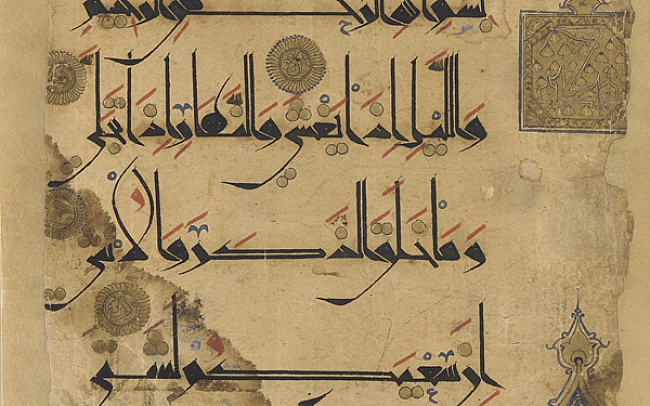 بِسْمِ اللَّهِ الرَّحْمَنِ الرَّحِيمِ
وَالَّيْلِ إِذَا يَغْشَى وَالنَّهَارِ إِذَا تَجَلَّى
وَمَا خَلَقَ الذَّكَرَ وَالْأُنْثَى
إِنَّ سَعْيَكُمْ لَشَتَّى